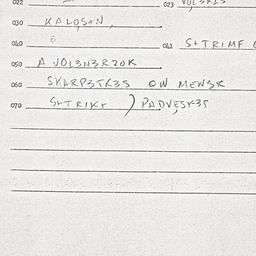 022 023
030 KALOS+N,
040 041 S+TRIMF
050 A VOL3N3RZOK
060 SKARP3TK3S OW MEWSK
070 S+TRIKF ) PADVESK3S